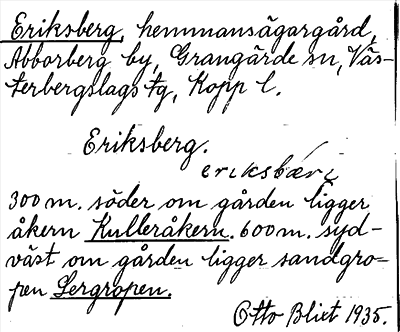 Eriksberg, hemmansägargård,
Abborberg by, Grangärde sn, Väs-
terbergslags tg, Kopp. l.
Eriksberg.
eriksbæri
300 m. söder om gården ligger
åkern Kulleråkern. 600 m. syd-
väst om gården ligger sandgro-
pen Lergropen.
Otto Blixt 1935.